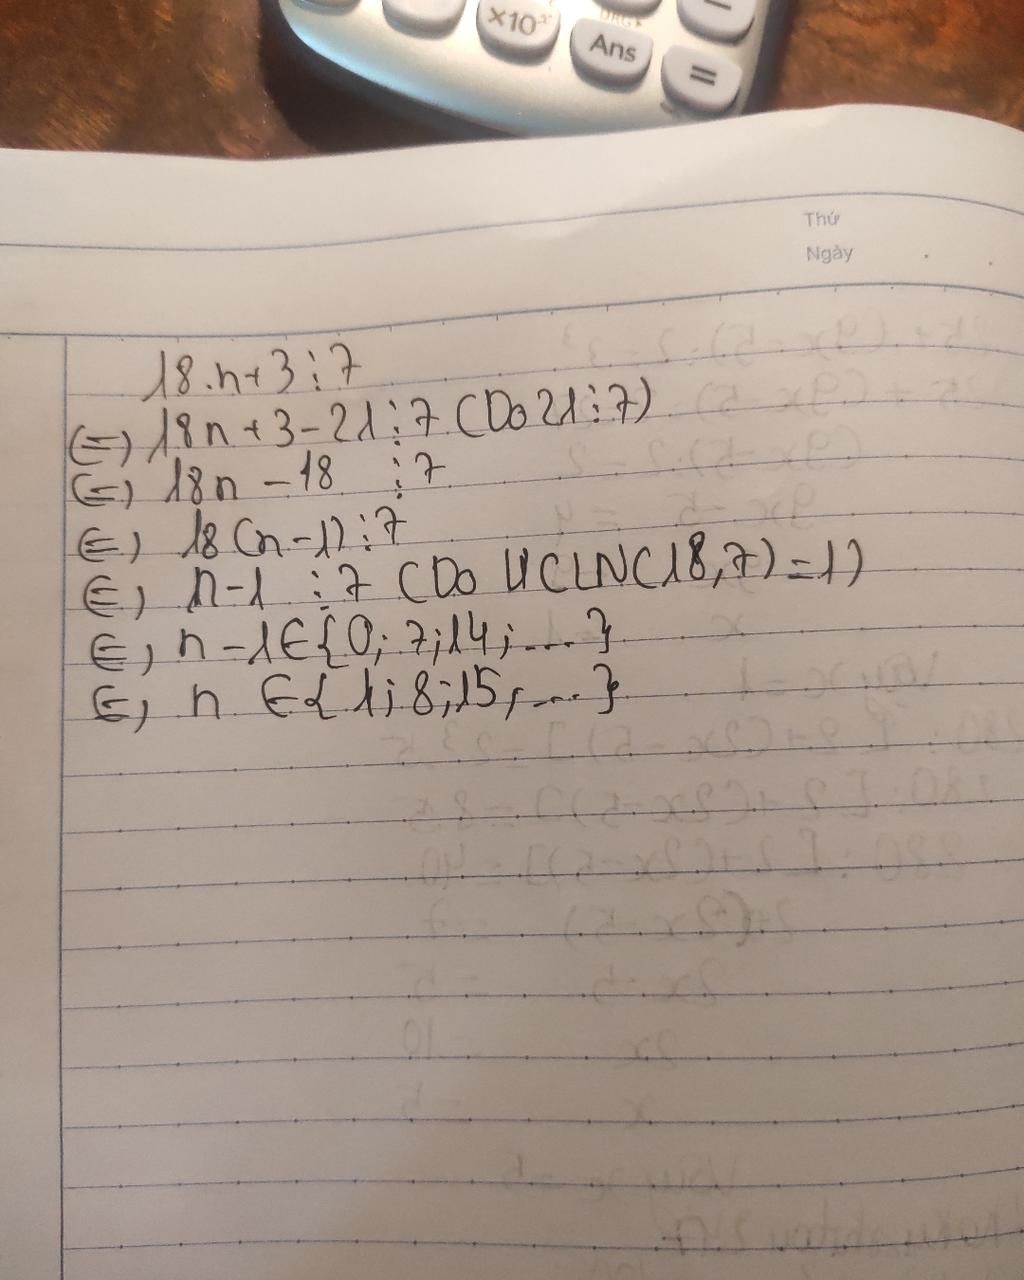 ×10ˣ
DRG▸
Ans
−
=
Thứ
Ngày
18.n+3⋮7
⇔ 18n+3-21⋮7 (Do 21⋮7)
⇔ 18n-18 ⋮7
⇔ 18(n-1)⋮7
⇔ n-1 ⋮7 (Do ƯCLN(18,7)=1)
⇔ n-1∈{0;7;14;...}
⇔ n ∈{1;8;15;...}